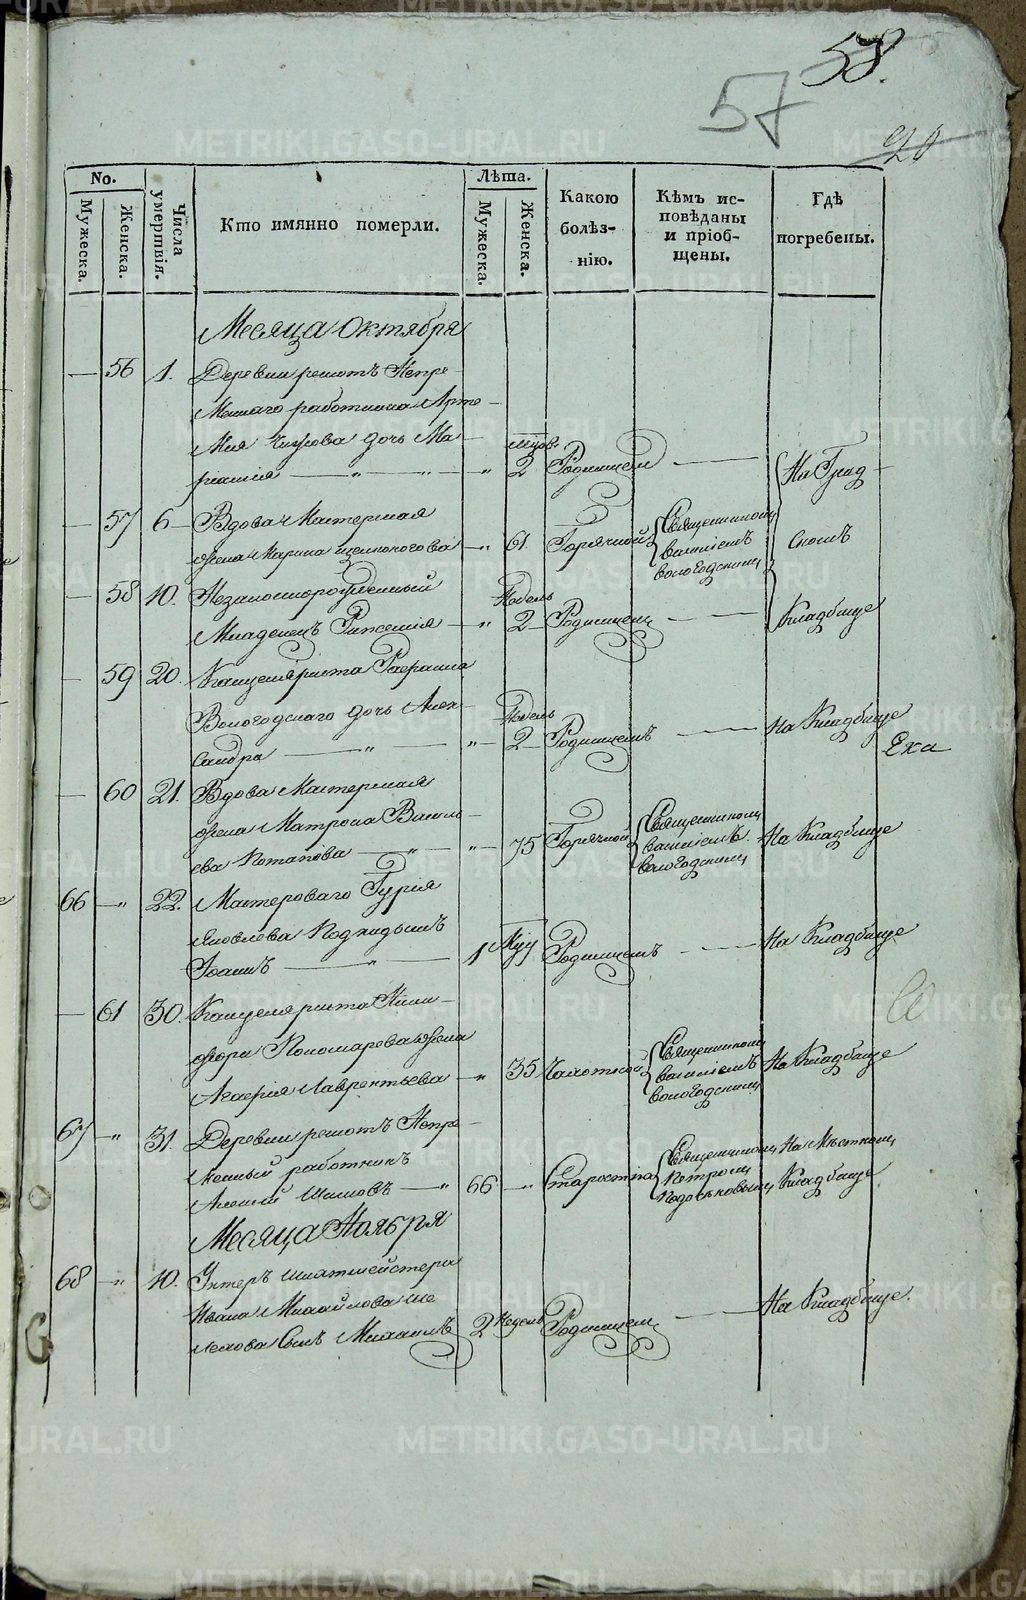 58.
57
20
No.
Мужеска.
Женска.
Числа умертвія.
Кто имянно померли.
Лѣта.
Мужеска.
Женска.
Какою болѣз-нію.
Кѣмъ ис-повѣданы и пріоб-щены.
Гдѣ погребены.
Месяца Октября
— 56 1. Деревни решотъ Непре-
меннаго работника Арте-
мія дочь Ма-
2 Родимцемъ — На Град-
— 57 6 Вдова Мастерская
жена Марина — „ 61 Горячкой Священникомъ Василіемъ Вологодскимъ скомъ
— 58 10. Незаконнорожденный
Младенецъ — „ Недель 2 Родимцемъ — Кладбище
— 59 20. Канцеляриста
Вологодскаго дочь Алек-
сандра — „ — „ Недель 2 Родимцемъ — На Кладбище
Еха
— 60 21. Вдова Мастерская
жена Матрона Василь-
ева Потапова — „ — „ 75 Горячкой Священникомъ Василіемъ Вологодскимъ На Кладбище
66 — „ 22. Мастероваго Гурія
Яковлева Подкидышъ
Іоаннъ — „ — 1 Мцъ Родимцемъ — На Кладбище
— 61 30. Канцеляриста Ники-
фора Пономарева жена
Лаврентьева — „ 35 Чахоткой Священникомъ Василіемъ Вологодскимъ На Кладбище
67 — „ 31. Деревни решотъ Непре-
менный работникъ
— „ 66 — „ Старостію Священникомъ Петромъ На Местномъ Кладбище
Месяца Ноября
68 — „ 10. Унтеръ шихтмейстера
Ивана Михайлова
сынъ Михаилъ 2 Недель Родимцемъ — На Кладбище.
METRIKI.GASO-URAL.RU